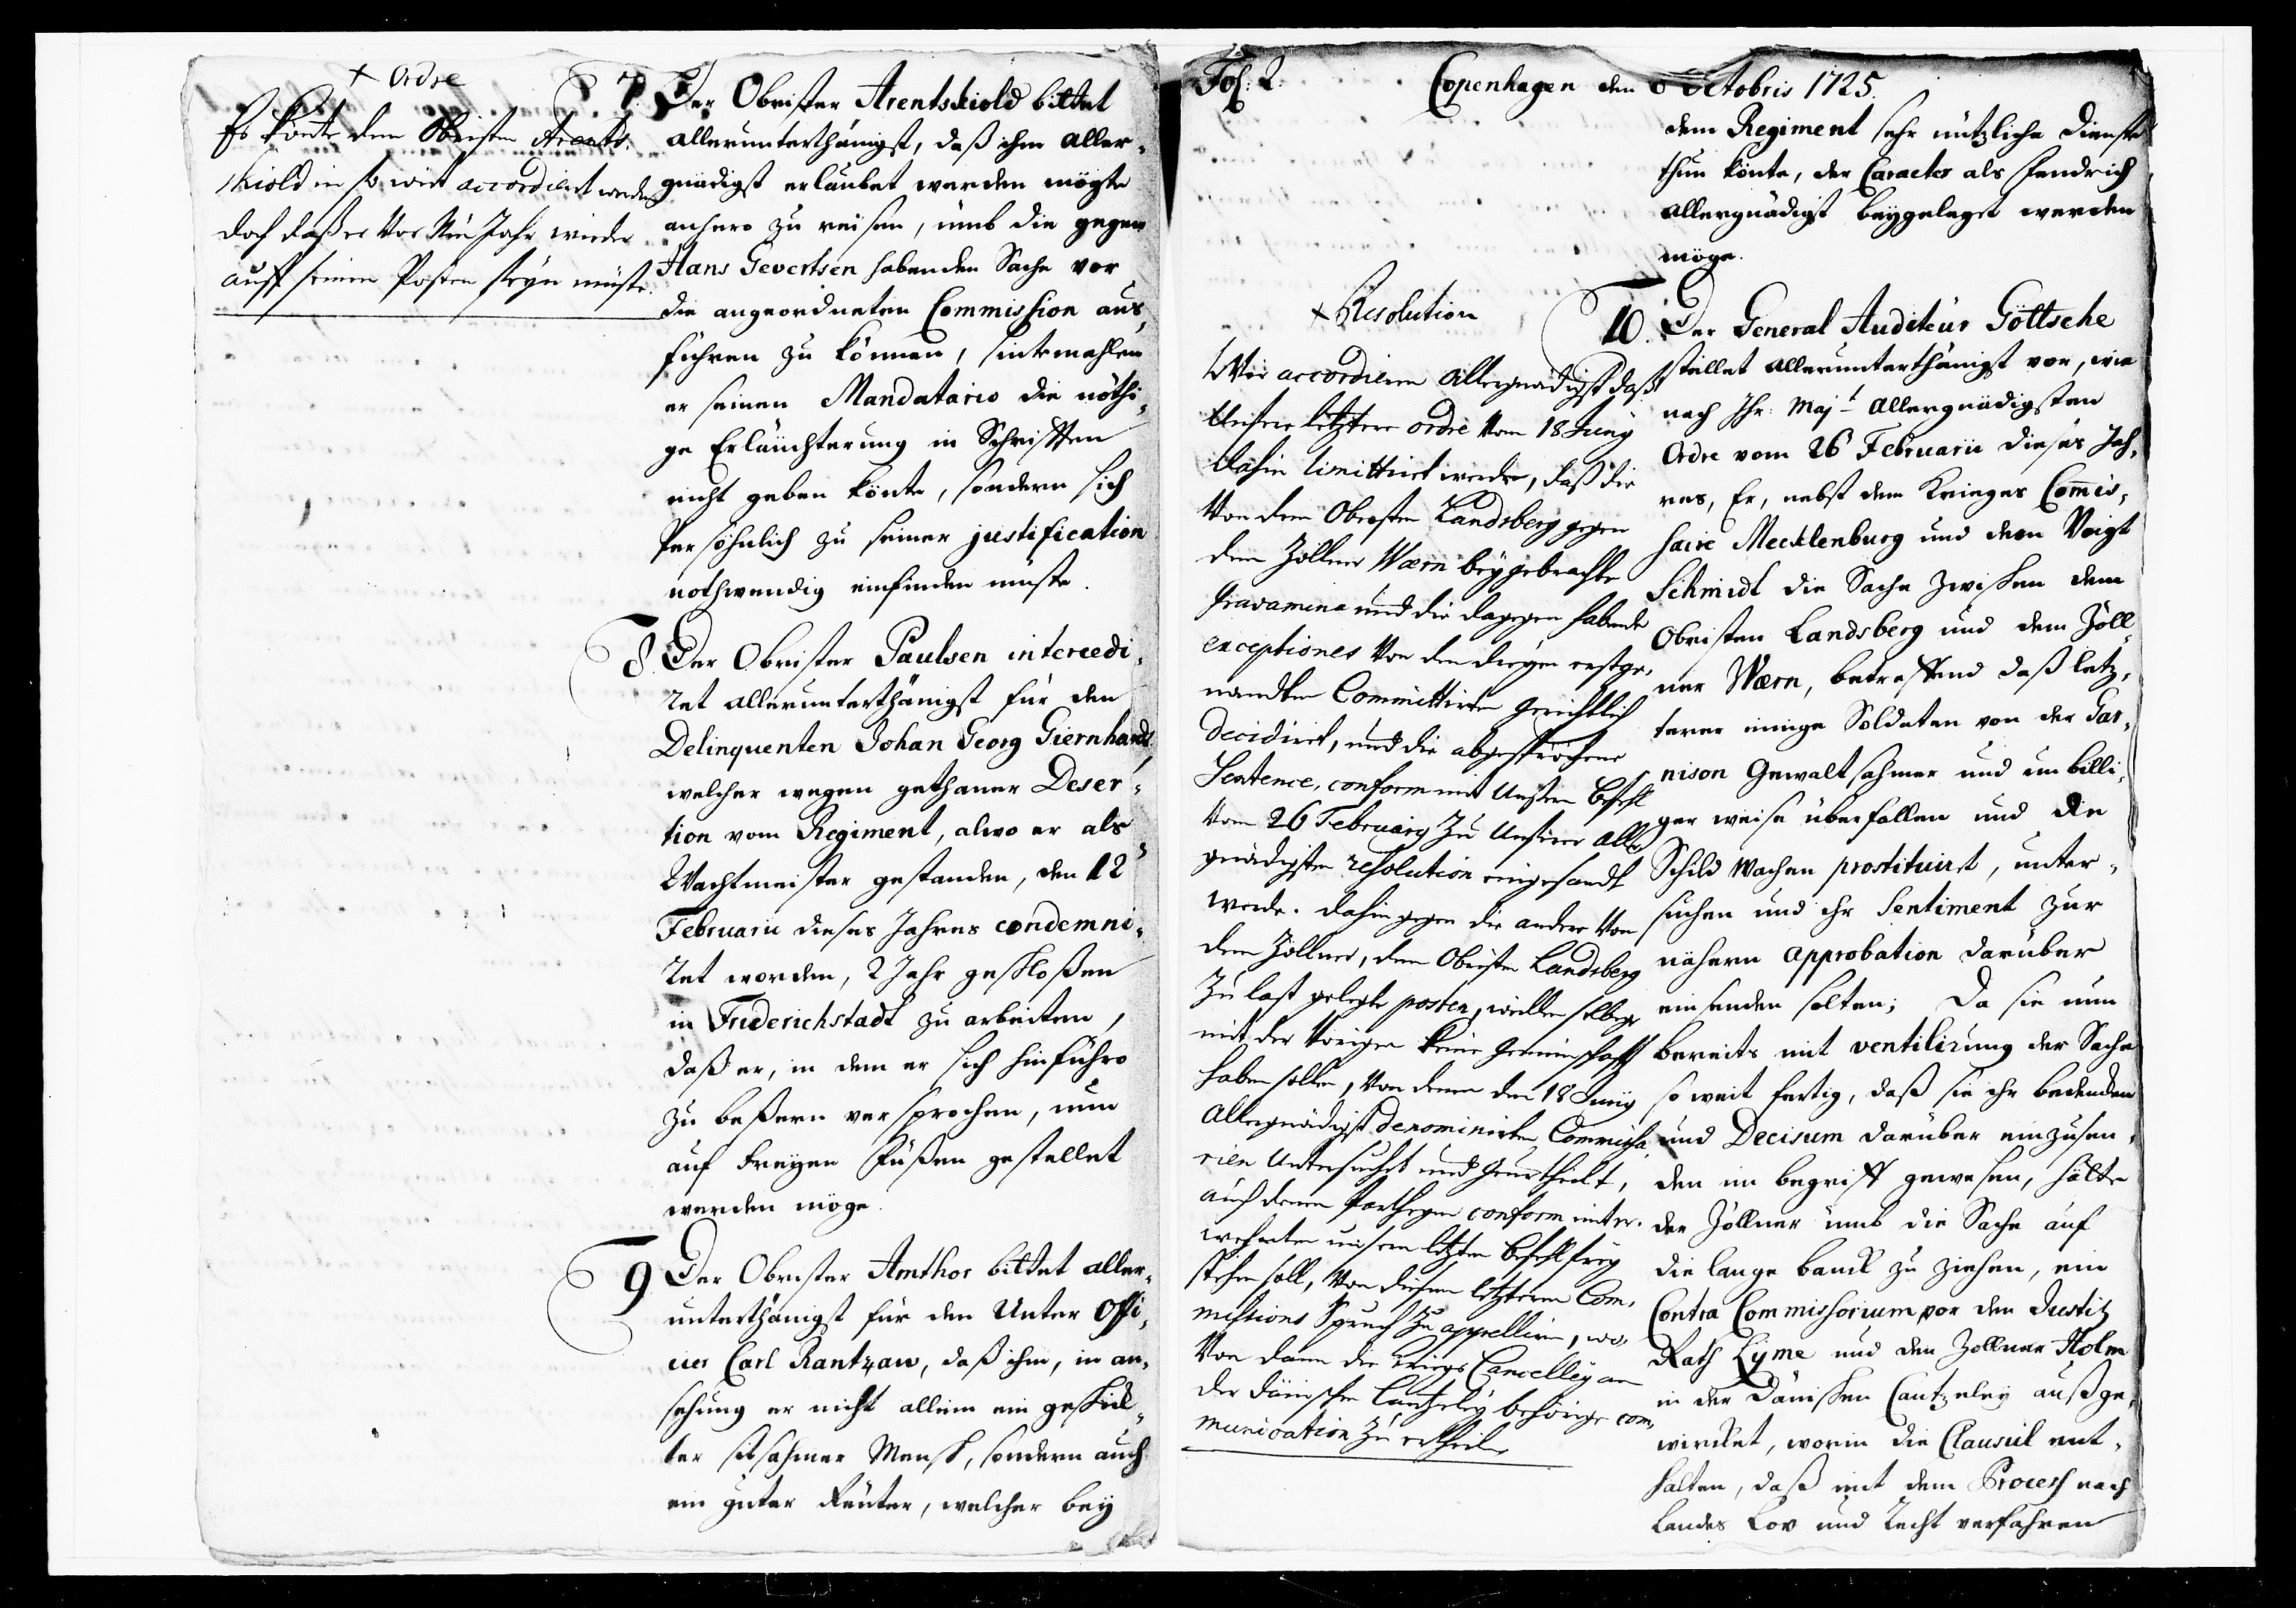 + Ordre
Es könte dem Obristen Arent-
skiold in so weit accordiret werden
doch daß er vor Neu Jahr wieder
auff seinem Posten seyn müste.
7. Der Obrister Arentskiold bittet
allerunterthänigst, daß ihm aller-
gnädigst erlaubet werden mögte
anhero zu reisen, umb die gegen
Hans Gevertsen habenden Sache vor
die angeordneten Commission aus-
führen zu können, sintemahlen
er seinen Mandatario die nöthi-
ge Erläuchterung in Schrifften
nicht geben könte, sondern sich
Persöhnlich zu seiner justification
nothwendig einfinden müste.
8. Der Obrister Paulsen intercedi-
ret allerunterthänigst für den
Delinquenten Johan Georg Giernhardt,
welcher wegen gethaner Deser-
tion vom Regiment, alwo er als
Wachtmeister gestanden, den 12
Februarii dieses Jahres condemni-
ret worden, 2 Jahr geschloßen
in Friderichstadt zu arbeiten,
daß er, in dem er sich hinführo
zu beßern versprochen, nun
auf freyen Füßen gestellet
werden möge.
9 Der Obrister Amthor bittet aller-
unterthänigst für den Unter Offi-
cier Carl Rantzau, daß ihm, in an-
sehung er nicht allein ein geschick-
ter sitsahmer Mensch, sondern auch
ein guter Reuter, welcher bey
Fol: 2. Copenhagen den 8 Octobris 1725.
dem Regiment sehr nützliche Dienste
thun könte, der Caracter als Fendrich
allergnädigst beygeleget werden
möge.
+ Resolution
Wir accordieren allergnädigst daß
Unsere letztere ordre vom 18 Juny
dahin limittiret werde, daß die
Von dem Obersten Landsberg gegen
dem Zöllner Wærn beygebrachte
gravamina und die dagegen habende
exceptiones Von den dreyen erstge-
nandten Committirten gerichtlich
decidiret, und die abgesprochene
Sentence, conform mit Unsern Befehl
vom 26 February zu Unserer aller-
gnädigsten resolution eingesandt
werde. dahingegen die andere Von
dem Zöllner, dem Obristen Landsberg
zu last gelegte posten, weillen selbige
mit der Vorigen keine gemeinschafft
haben sollen, Von denen den 18 Juny
Allergnädigst denominirten Commissa-
rien Untersucht und geurtheilt,
auch denen Partheyen conform inter-
wehnten unsern letzten Befehl frey
stehen soll, Von diesem letzteren Com-
missions Spruch zu appelliren, wo-
Von dann die Kriegs Cancelley an
der Dänischen Cantzeley behörige com-
munication zu ertheilen
10. Der General Auditeur Göttsche
stellet allerunterthänigst vor, wie
nach Ihr: Majt allergnädigsten
Ordre vom 26 Februarii dieses Jah-
res, Er, nebst dem Krieges Com̄is-
saire Mecklenburg und dem Voigt
Schmidt die Sache zwischen dem
Obristen Landsberg und dem Zöll-
ner Wærn, betreffend daß letz-
terer einige Soldaten von der Gar-
nison Gewaltsahmer und unbilli-
ger weise überfallen und die
Schild Wachen prostituirt, unter-
suchen und ihr Sentiment zur
nähern approbation darüber
einsenden solten; Da sie nun
bereits mit ventilirung der Sache
so weit fertig, daß sie ihr bedencken
und Decisum darüber einzusen-
den im begriff gewesen, hätte
der Zöllner umb die Sache auf
die lange banck zu ziehen, ein
Contra Commissorium vor den Justitz
Rath Lyme und den Zöllner Holm
in der Dänischen Cantzeley außge-
wircket, worin die Clausul ent-
halten, daß mit dem Process nach
Landes Lov und Recht verfahren